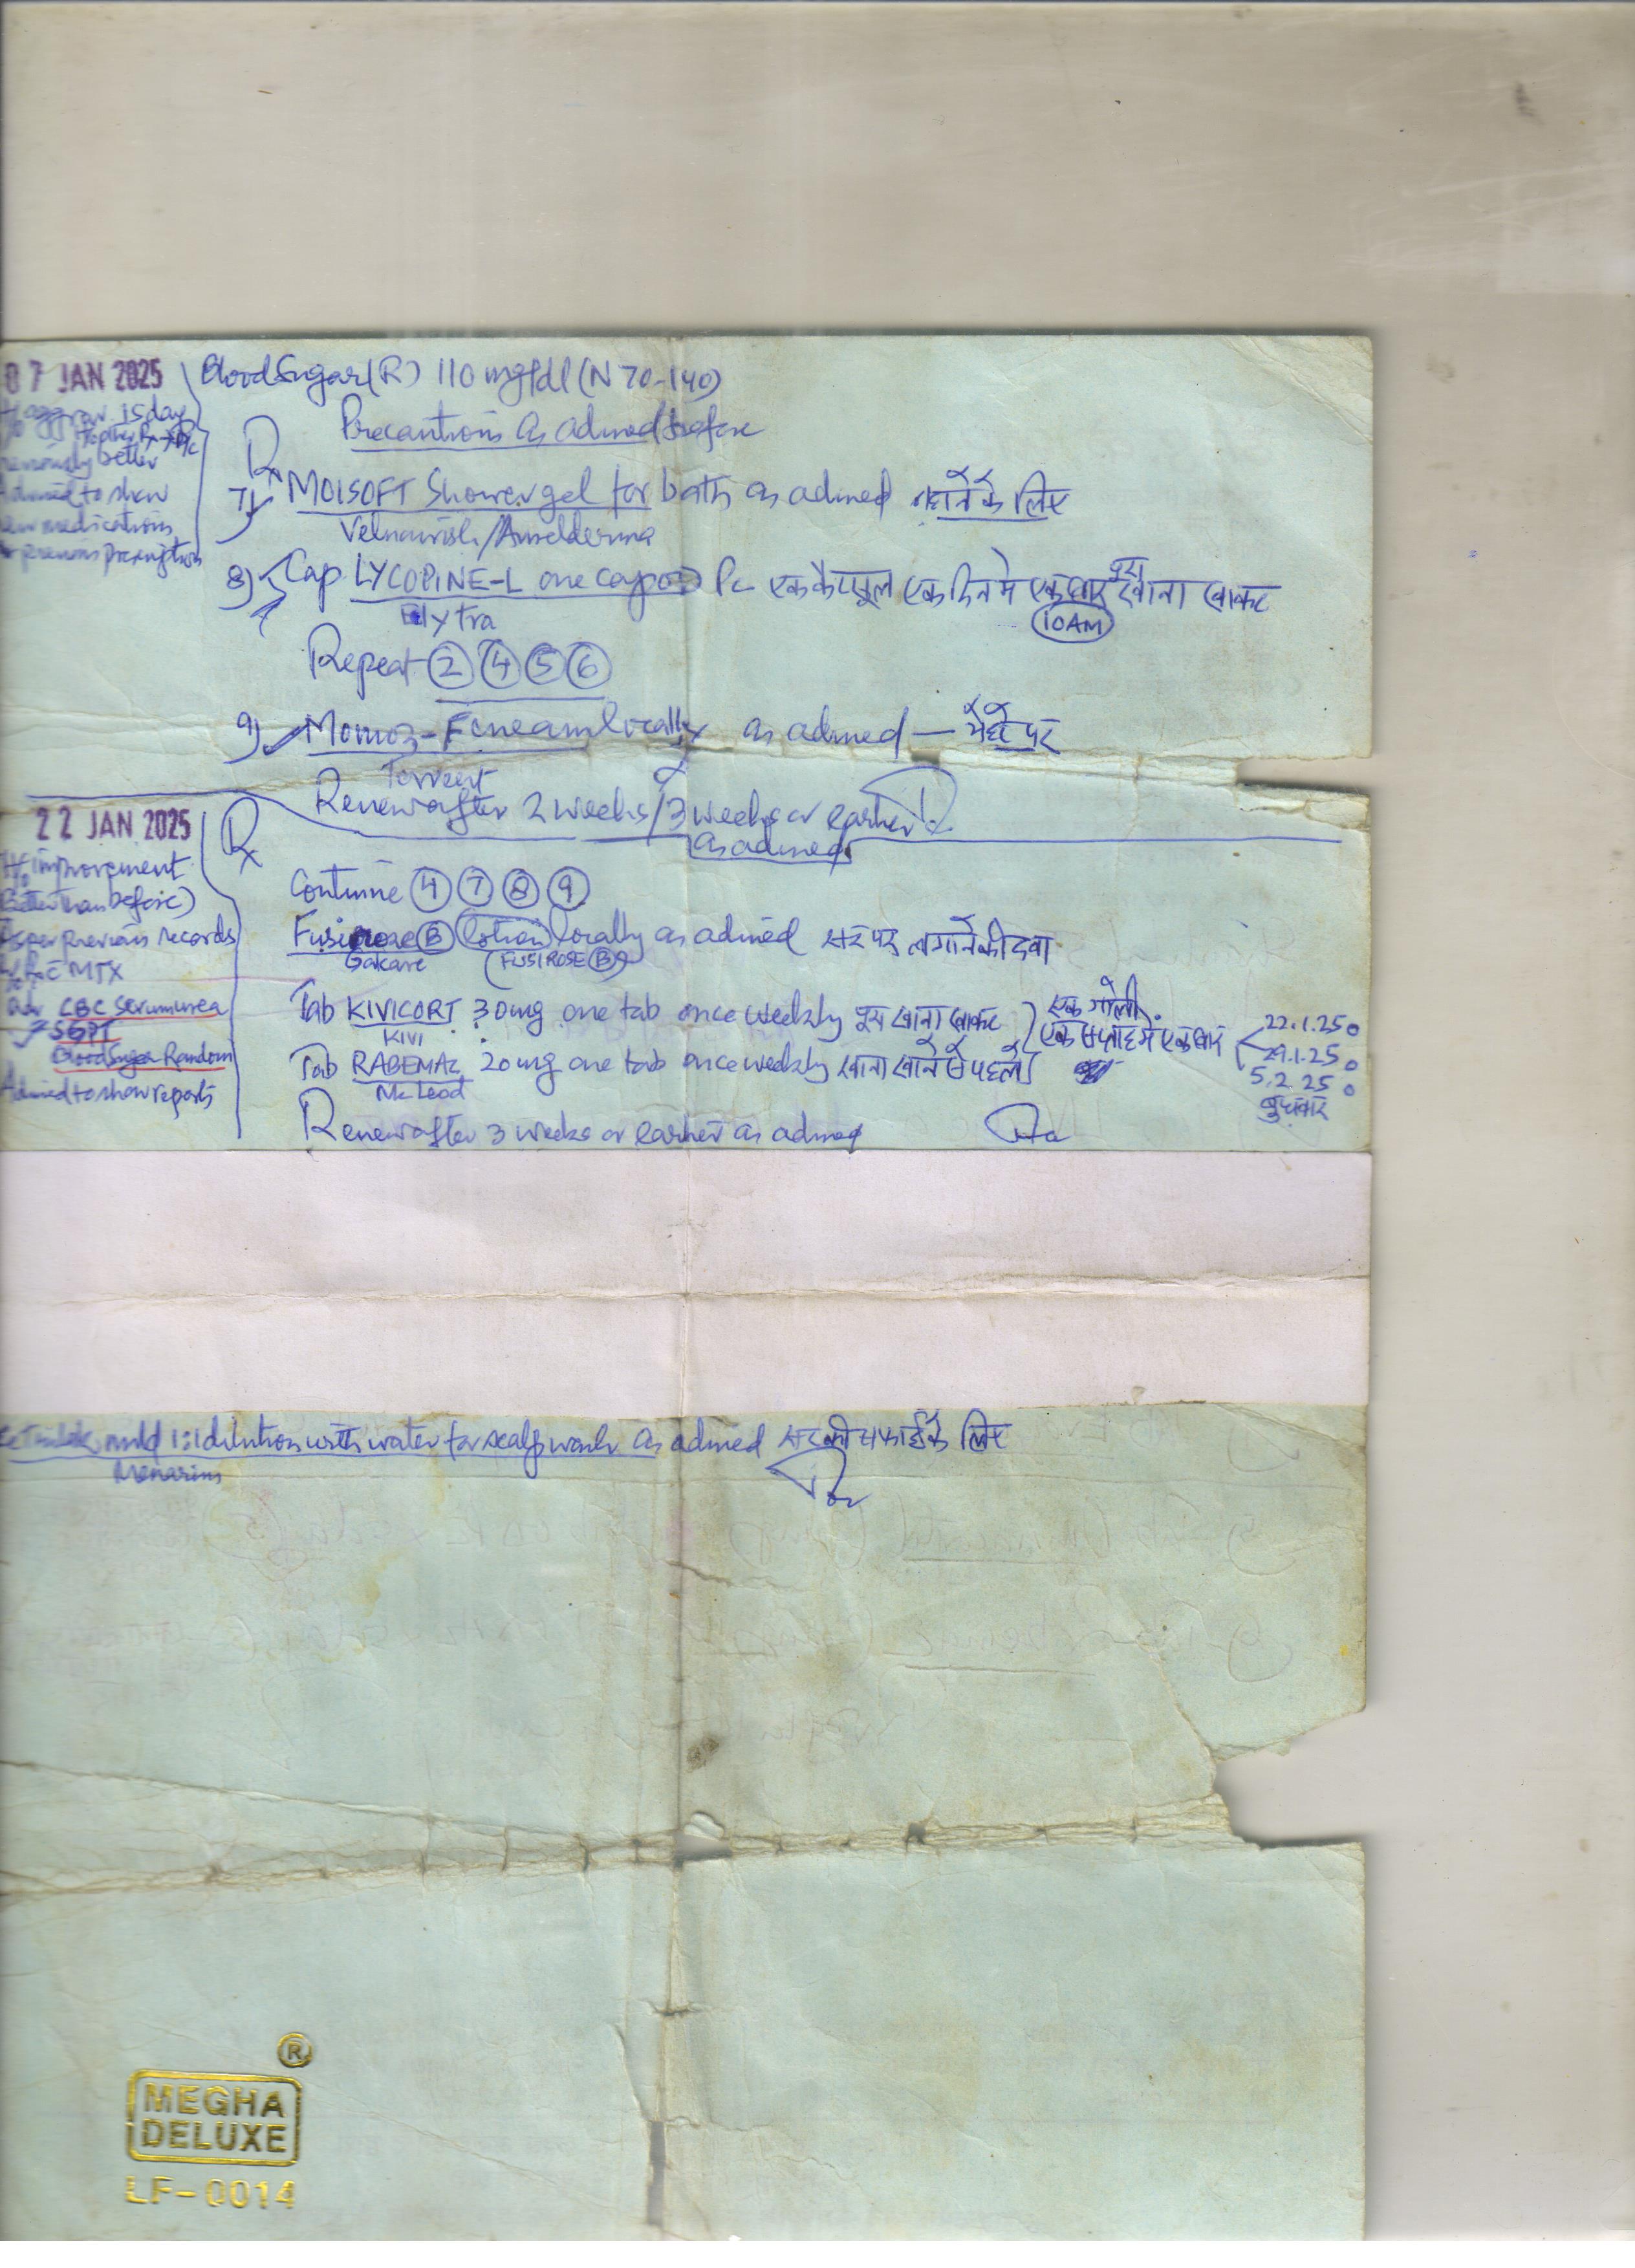 07 JAN 2025
H/o aggrav. 15 day
previously better
Advised to show
new medications
or previous prescription
Blood Sugar (R) 110 mg/dl (N 70-140)
Precautions as advised before
Rx
7) MOISOFT Shower gel for bath as advised नहाने के लिए
Velnourish/Amelderma
8) Cap LYCOPINE-L one cap OD Pc एक कैप्सूल एक दिन मे एक बार पूरा खाना खाकर
10AM
Elytra
Repeat 2 4 5 6
9) Momoz-F cream locally as advised — चेहरे पर
Torrent
Renew after 2 weeks/3 weeks or earlier
as advised
22 JAN 2025
H/o improvement
(Better than before)
As per previous records
MTX
Adv CBC Serum urea
SGPT
Blood Sugar Random
Advised to show reports
Rx
Continue 4 7 8 9
Fusirose B lotion locally as advised सर पर लगाने की दवा
Galcare (FUSIROSE B)
Tab KIVICORT 30mg one tab once weekly पूरा खाना खाकर
KIVI
Tab RABEMAC 20mg one tab once weekly खाना खाने से पहले
McLeod
एक गोली
एक सप्ताह मे एक बार
22.1.25
29.1.25
5.2.25
बुधवार
Renew after 3 weeks or earlier as advised
mild 1:1 dilution with water for scalp wash as advised सर की सफाई के लिए
Menarini
®
MEGHA
DELUXE
LF-0014